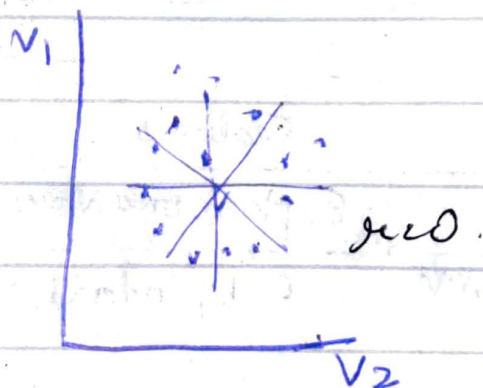 V1
r=0.
V2